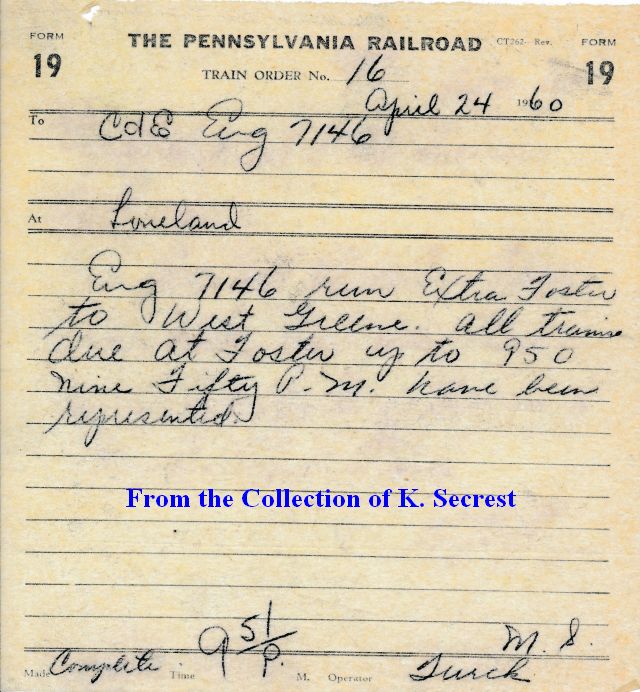 FORM 19 THE PENNSYLVANIA RAILROAD CT262- Rev. FORM 19
TRAIN ORDER No. 16
April 24 1960
To C&E Eng 7146
At Loveland
Eng 7146 run Extra Foster
to West Greene. All trains
due at Foster up to 950
nine Fifty P.M. have been
represented.
From the Collection of K. Secrest
M. S.
Made Complete Time 9 51/P. M. Operator Turck